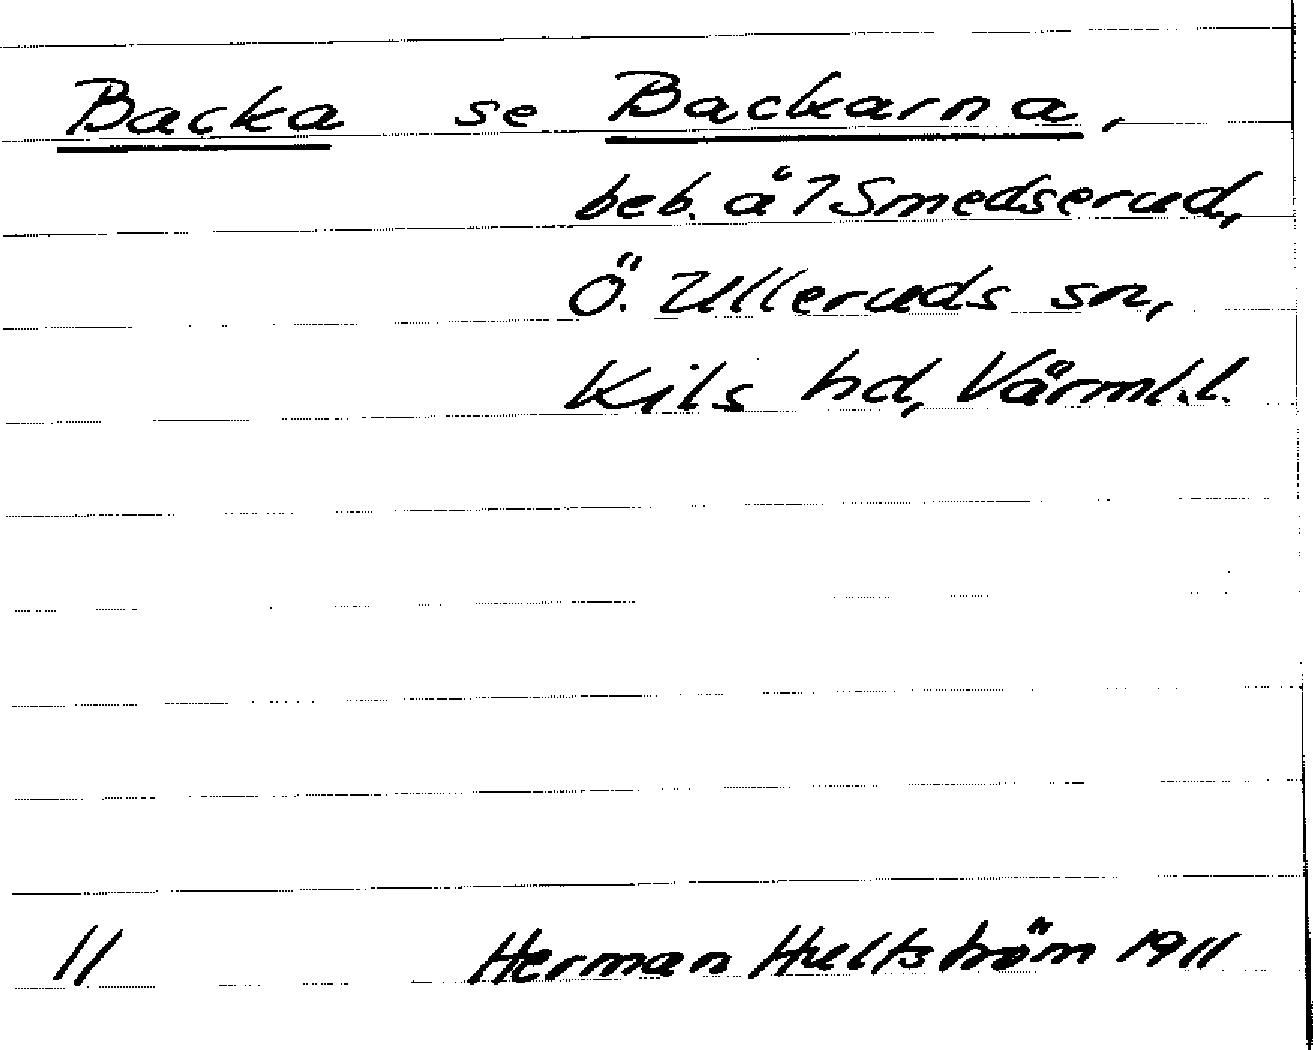 Backa se Backarna,
beb. å 7 Smedserud,
Ö. Ulleruds sn,
Kils hd, Värml. l.
11 Herman Hultström 1911